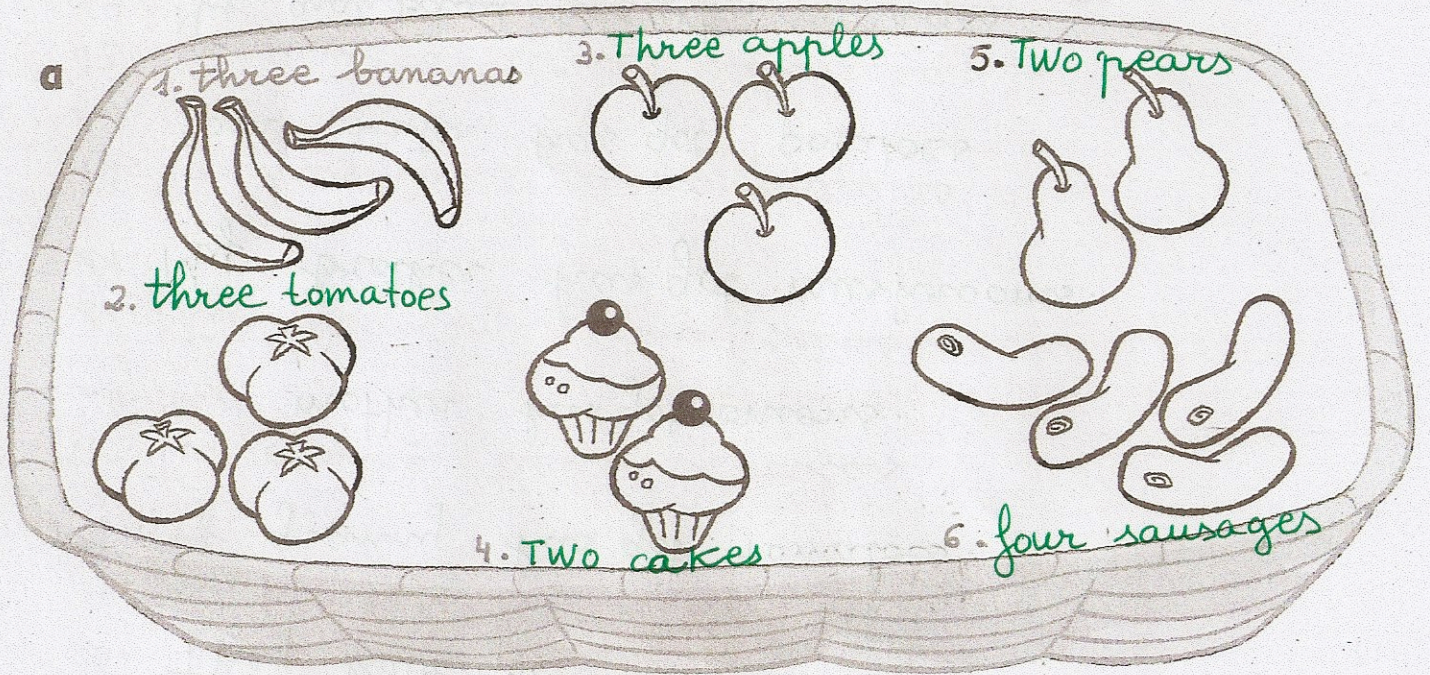 a
1. three bananas
2. three tomatoes
3. Three apples
4. Two cakes
5. Two pears
6. four sausages